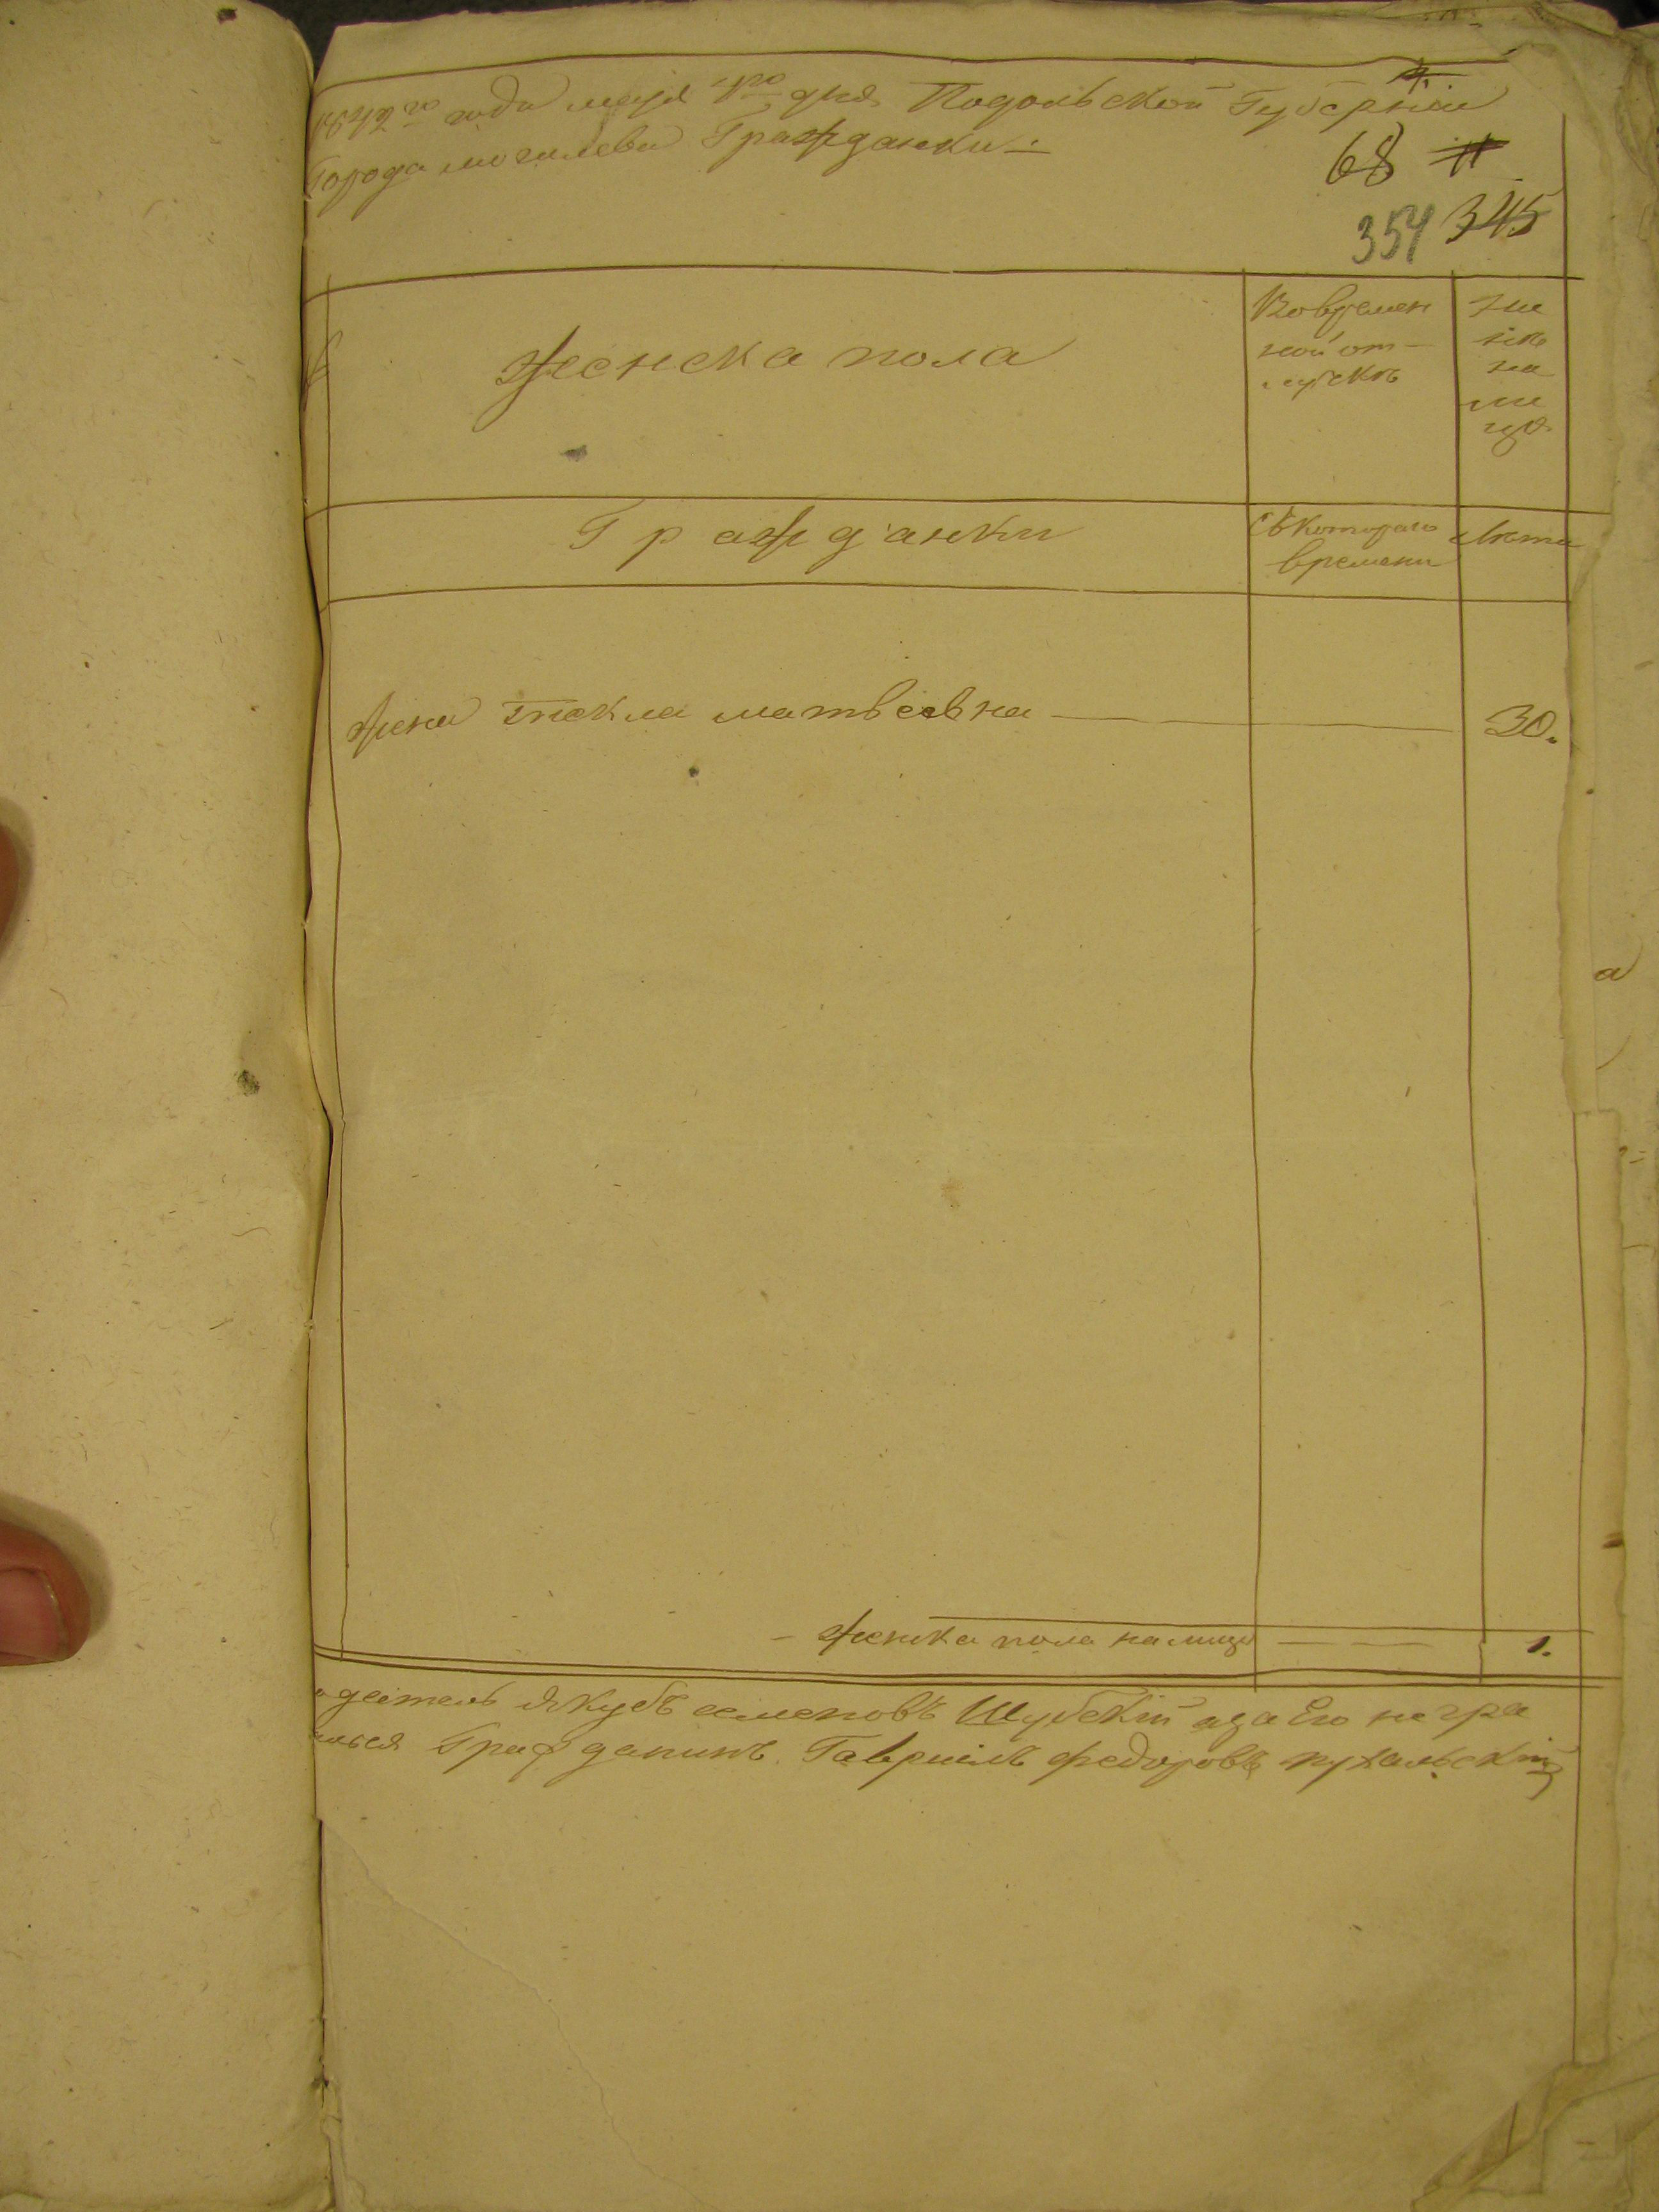 года мая 1го дня Подольской Губернiи
города могилева Гражданки
68
354 345
Женска пола
Во времен
ной от-
лучкѣ
Ны
нѣ
на
ли
цо
Гражданки
Съ котораго
времени
Лѣта
жена Текла матвеевна
30.
женска пола налицо
1.
Якубъ семеновъ Шубскiй а за Его не гра
Гражданинъ Гаврiилъ федоровъ пухальскiй